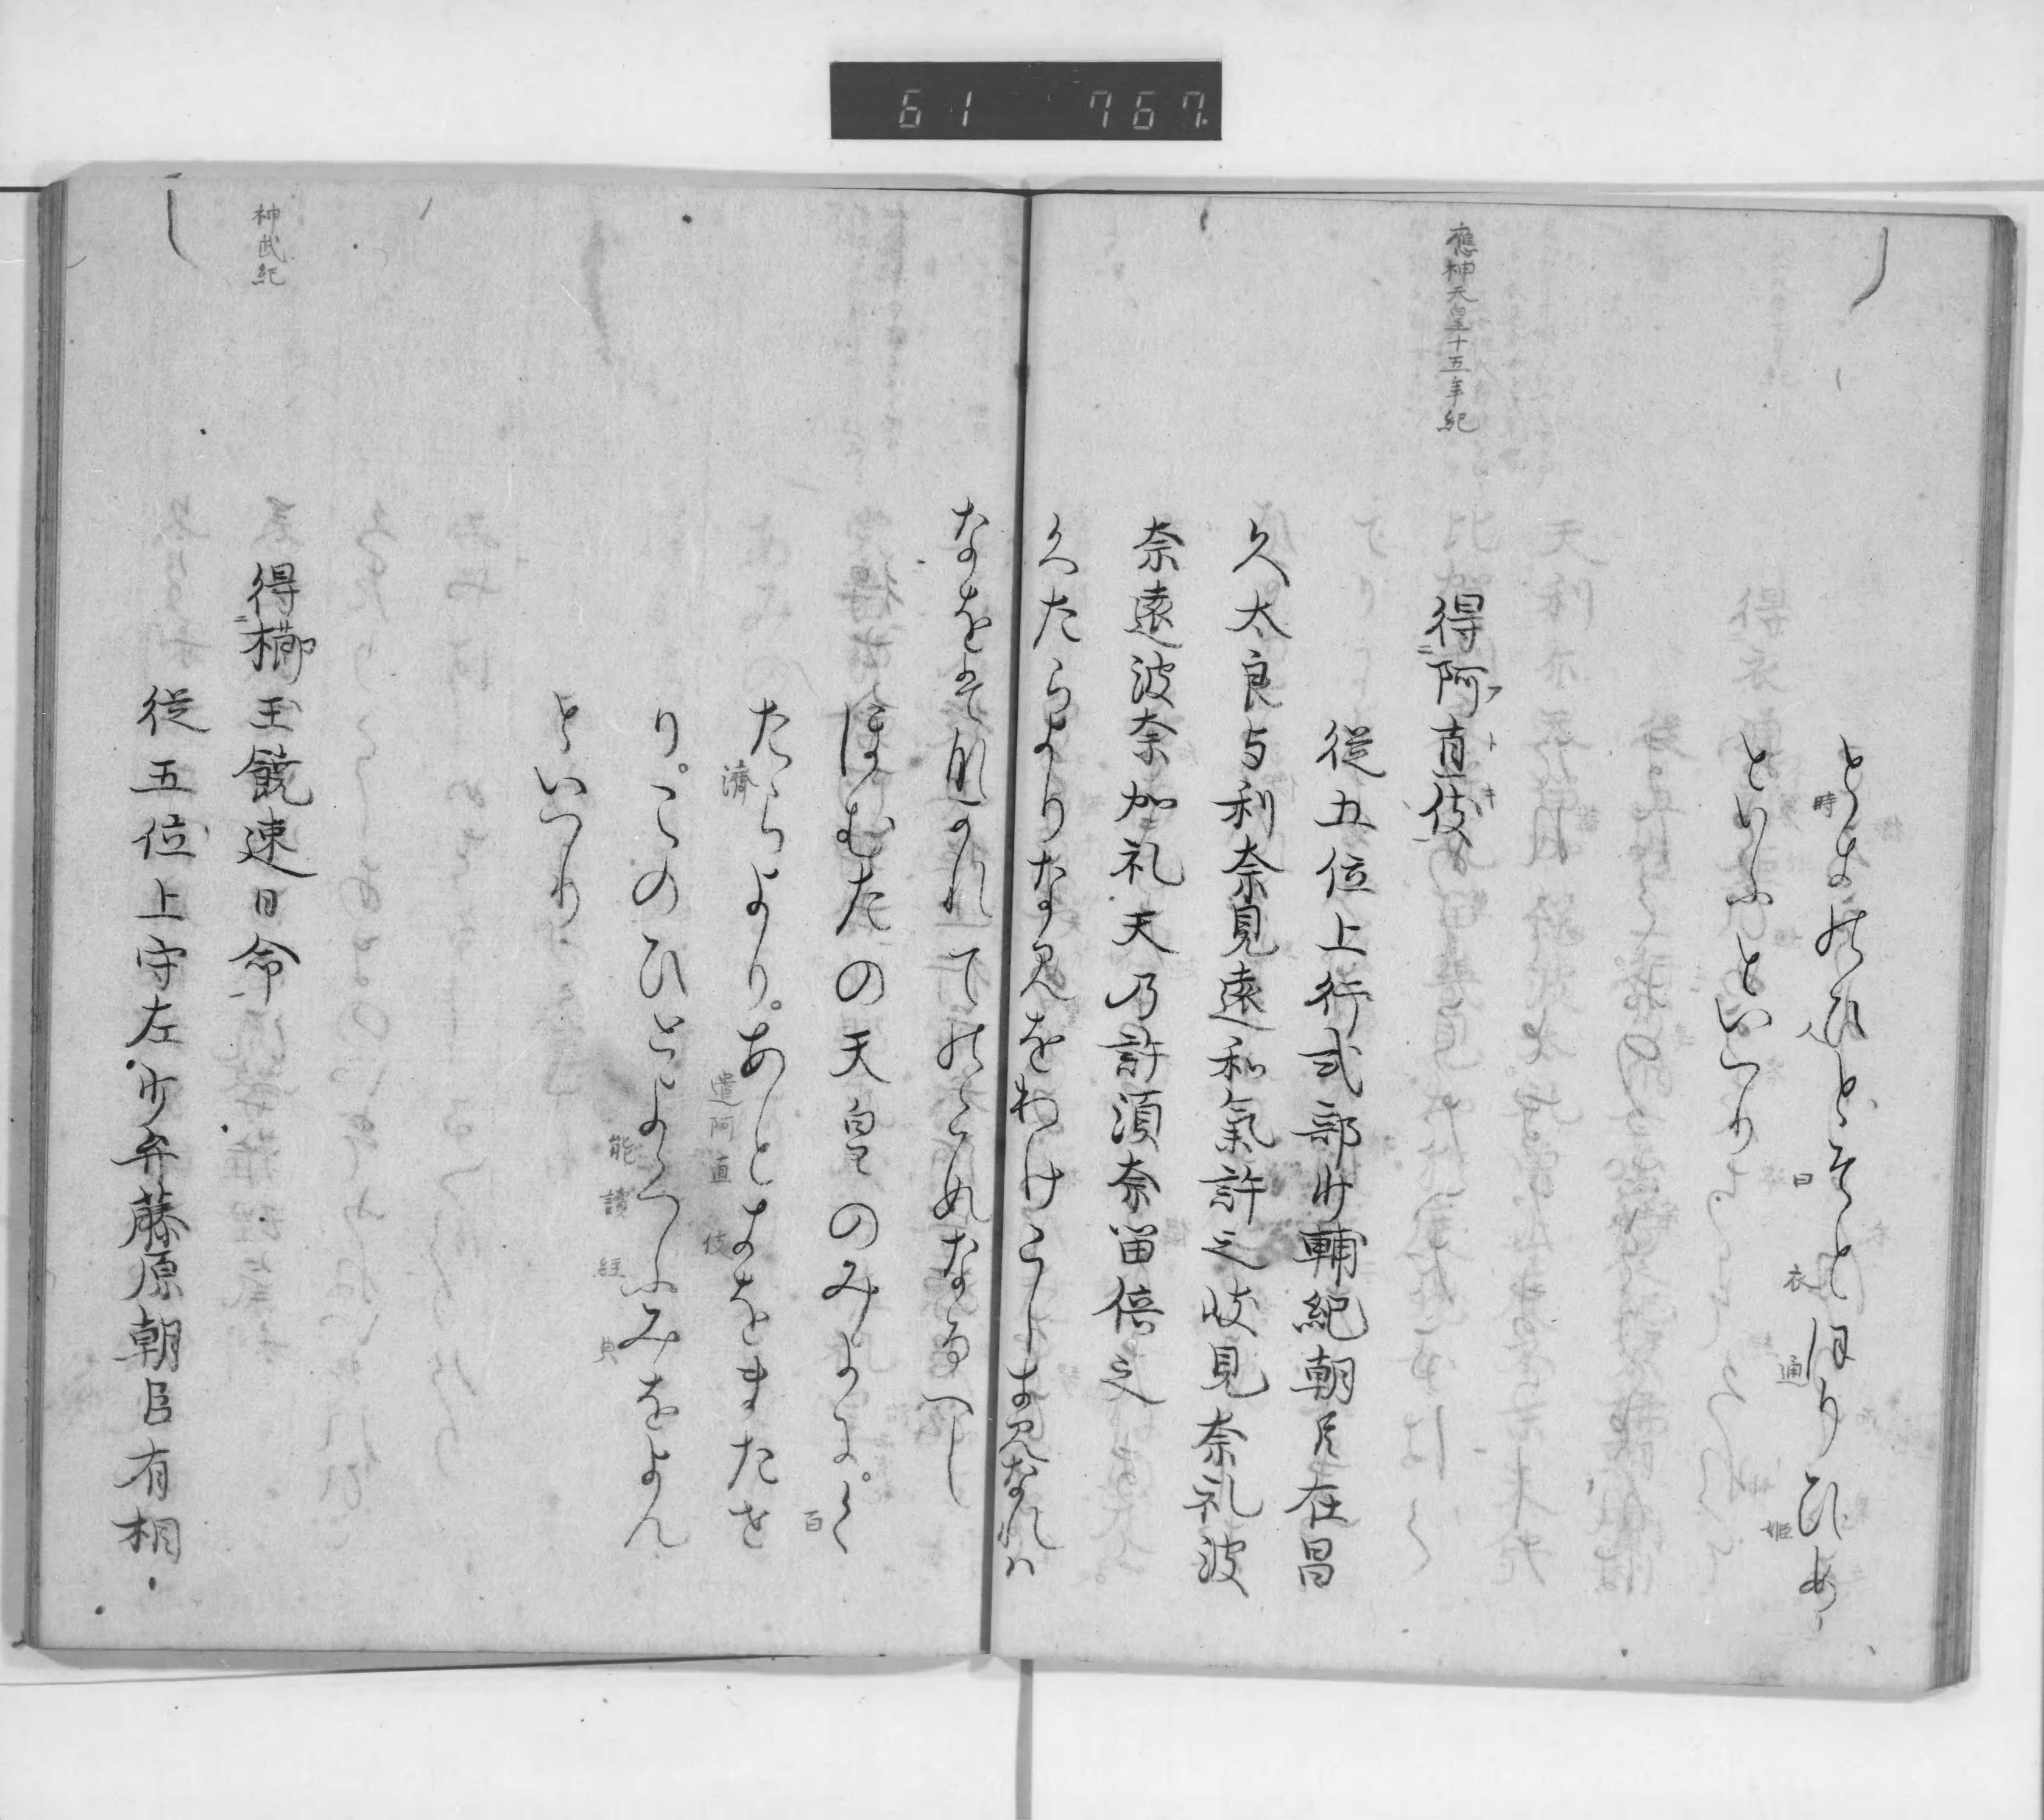 61 767.
ときのひとそとほりひめ
時 曰 衣 通 姫
といふといへり
應神天皇十五年紀
得阿直伎
アトキ
従五位上行式部少輔紀朝臣在昌
久太良与利奈見遠和氣許之岐見奈礼波
奈遠波奈加礼天乃許須奈留倍之
くたらよりなみをわけこしきみなれハ
なをはなかれてのこすなるへし
ほむたの天皇のみよにく
百
たらよりあときをまたせ
濟 遣阿直伎
り。このひとよくふみをよん
能讀經典
といへり
神武紀
得櫛玉饒速日命
従五位上守左少弁藤原朝臣有相